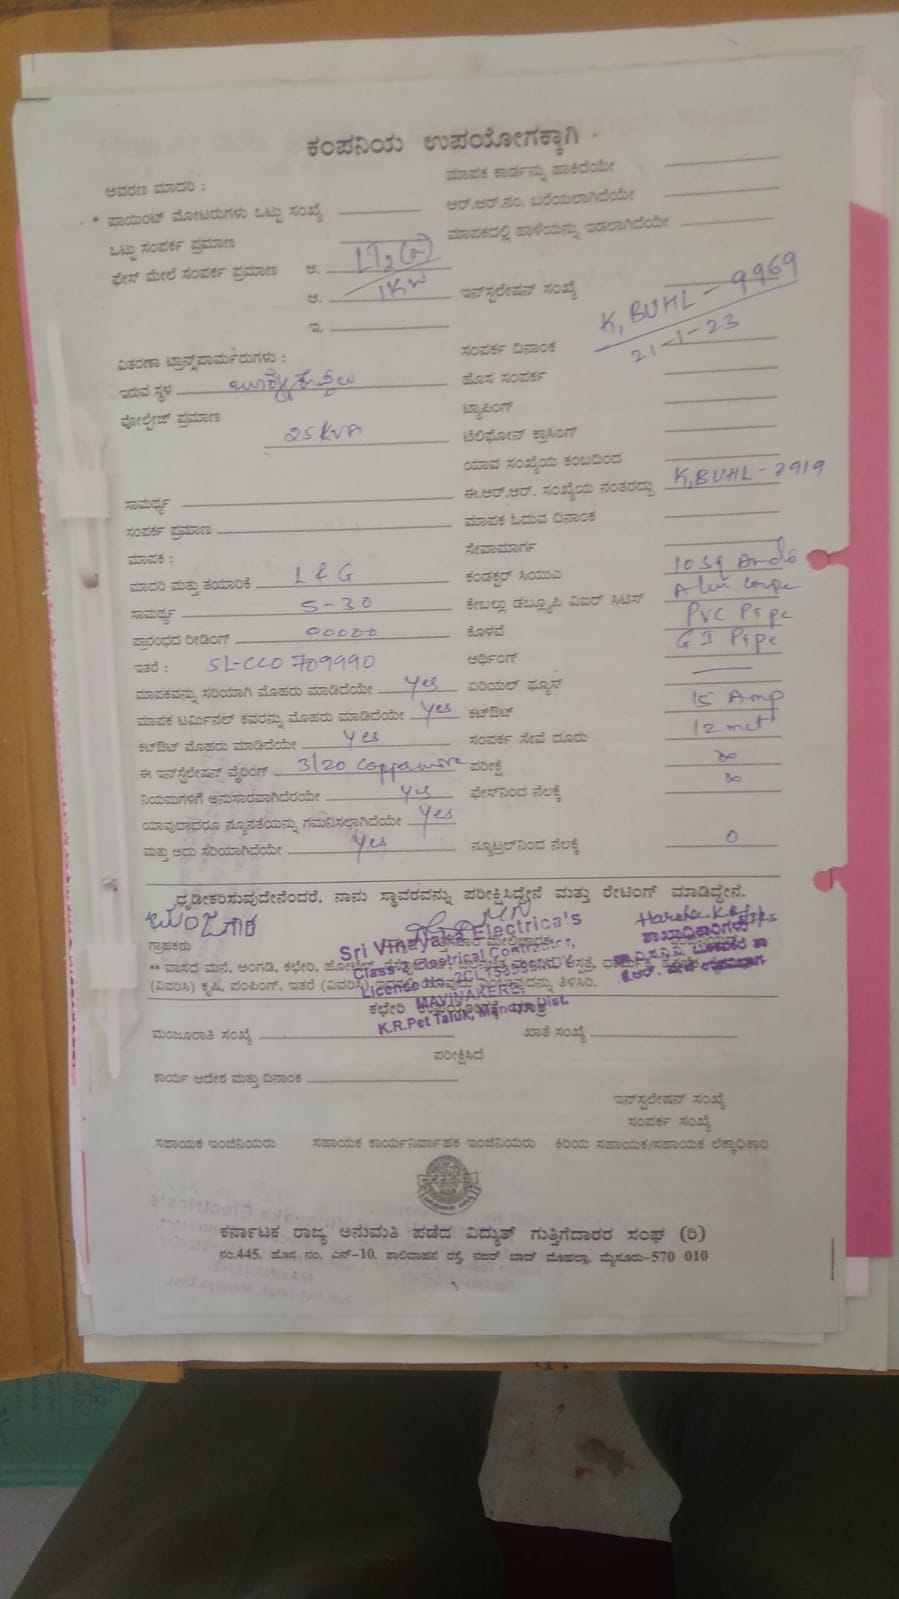 ಕಂಪನಿಯ ಉಪಯೋಗಕ್ಕಾಗಿ
ಆವರಣ ಮಾದರಿ :
ಮಾಪಕ ಕಾರ್ಡನ್ನು ಹಾಕಿದೆಯೇ
* ಪಾಯಿಂಟ್ ಮೋಟರುಗಳು ಒಟ್ಟು ಸಂಖ್ಯೆ
ಆರ್.ಆರ್.ನಂ. ಬರೆಯಲಾಗಿದೆಯೇ
ಒಟ್ಟು ಸಂಪರ್ಕ ಪ್ರಮಾಣ
ಮಾಪಕದಲ್ಲಿ ಹಾಳೆಯನ್ನು ಇಡಲಾಗಿದೆಯೇ
ಫೇಸ್ ಮೇಲೆ ಸಂಪರ್ಕ ಪ್ರಮಾಣ ಅ. LT2(a)
ಆ. 1KW ಇನ್‌ಸ್ಟಲೇಷನ್ ಸಂಖ್ಯೆ K, BUHL - 9969
ಇ.
ಸಂಪರ್ಕ ದಿನಾಂಕ 21-1-23
ವಿತರಣಾ ಟ್ರಾನ್ಸ್‌ಪಾರ್ಮರುಗಳು :
ಇರುವ ಸ್ಥಳ
ಹೊಸ ಸಂಪರ್ಕ
ವೋಲ್ಟೇಜ್ ಪ್ರಮಾಣ
ಟ್ಯಾಪಿಂಗ್
25 KVA
ಟೆಲಿಫೋನ್ ಕ್ರಾಸಿಂಗ್
ಯಾವ ಸಂಖ್ಯೆಯ ಕಂಬದಿಂದ
ಸಾಮರ್ಥ್ಯ
ಈ.ಆರ್.ಆರ್. ಸಂಖ್ಯೆಯ ನಂತರದ್ದು K, BUHL - 2919
ಸಂಪರ್ಕ ಪ್ರಮಾಣ
ಮಾಪಕ ಓದುವ ದಿನಾಂಕ
ಮಾಪಕ :
ಸೇವಾಮಾರ್ಗ
ಮಾದರಿ ಮತ್ತು ತಯಾರಿಕೆ L & G
ಕಂಡಕ್ಟರ್ ಸಿಯುಎ 10 sq
ಸಾಮರ್ಥ್ಯ 5-30
ಕೇಬಲ್ಲು ಡಬ್ಲ್ಯೂಪಿ ವಿಐರ್ ಸಿಟಿಸ್
ಪ್ರಾರಂಭದ ರೀಡಿಂಗ್ 00000
ಕೊಳವೆ PVC Pipe
ಇತರೆ : SL-CCO 709990
ಅರ್ಥಿಂಗ್ GI Pipe
ಮಾಪಕವನ್ನು ಸರಿಯಾಗಿ ಮೊಹರು ಮಾಡಿದೆಯೇ Yes
ಏರಿಯಲ್ ಫ್ಯೂಸ್
ಮಾಪಕ ಟರ್ಮಿನಲ್ ಕವರನ್ನು ಮೊಹರು ಮಾಡಿದೆಯೇ Yes
ಕಟ್‌ಔಟ್ 15 Amp
ಕಟ್‌ಔಟ್ ಮೊಹರು ಮಾಡಿದೆಯೇ Yes
ಸಂಪರ್ಕ ಸೇವೆ ದೂರು 12 met
ಈ ಇನ್‌ಸ್ಟಲೇಷನ್ ವೈರಿಂಗ್ 3/20 Copper wire
ಪರೀಕ್ಷೆ
ನಿಯಮಗಳಿಗೆ ಅನುಸಾರವಾಗಿದೆರಯೇ Yes
ಫೇಸ್‌ನಿಂದ ನೆಲಕ್ಕೆ
ಯಾವುದಾದರೂ ನ್ಯೂನತೆಯನ್ನು ಗಮನಿಸಲ್ಪಾಗಿದೆಯೇ Yes
ಮತ್ತು ಅದು ಸರಿಯಾಗಿದೆಯೇ Yes
ನ್ಯೂಟ್ರಲ್‌ನಿಂದ ನೆಲಕ್ಕೆ 0
ಧೃಡೀಕರಿಸುವುದೇನೆಂದರೆ, ನಾನು ಸ್ಥಾವರವನ್ನು ಪರೀಕ್ಷಿಸಿದ್ದೇನೆ ಮತ್ತು ರೇಟಿಂಗ್ ಮಾಡಿದ್ದೇನೆ.
ಗ್ರಾಹಕರು
Sri Vinayaka Electrica's
Class-2 Electrical Contractor,
License No. 2CL
MAVINAKERE,
K.R.Pet Taluk, Mandya Dist.
ಶಾಖಾಧಿಕಾರಿಗಳು
** ವಾಸದ ಮನೆ, ಅಂಗಡಿ, ಕಛೇರಿ, ಹೋಟೆಲ್,
(ವಿವರಿಸಿ) ಕೃಷಿ, ಪಂಪಿಂಗ್, ಇತರೆ (ವಿವರಿಸಿ) ತಿಳಿಸಿರಿ.
ಕಛೇರಿ ಉಪಯೋಗಕ್ಕೆ ಮಾತ್ರ
ಮಂಜೂರಾತಿ ಸಂಖ್ಯೆ
ಖಾತೆ ಸಂಖ್ಯೆ
ಪರೀಕ್ಷಿಸಿದೆ
ಕಾರ್ಯ ಆದೇಶ ಮತ್ತು ದಿನಾಂಕ
ಇನ್‌ಸ್ಟಲೇಷನ್ ಸಂಖ್ಯೆ
ಸಂಪರ್ಕ ಸಂಖ್ಯೆ
ಸಹಾಯಕ ಇಂಜಿನಿಯರು ಸಹಾಯಕ ಕಾರ್ಯನಿರ್ವಾಹಕ ಇಂಜಿನಿಯರು ಕಿರಿಯ ಸಹಾಯಕ/ಸಹಾಯಕ ಲೆಕ್ಕಾಧಿಕಾರಿ
ಕರ್ನಾಟಕ ರಾಜ್ಯ ಅನುಮತಿ ಪಡೆದ ವಿದ್ಯುತ್ ಗುತ್ತಿಗೆದಾರರ ಸಂಘ (ರಿ)
ನಂ.445, ಹೊಸ ನಂ. ಎನ್-10, ಶಾಲಿವಾಹನ ರಸ್ತೆ, ನಜರ್ ಬಾದ್ ಮೊಹಲ್ಲಾ, ಮೈಸೂರು-570 010